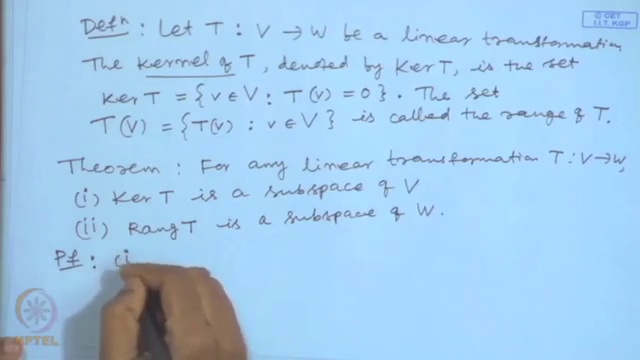 © CET
I.I.T. KGP
Defⁿ : Let T : V → W be a linear transformation
The Kernel of T, denoted by Ker T, is the set
Ker T = {v ∈ V : T(v) = 0}. The set
T(V) = {T(v) : v ∈ V} is called the range of T.
Theorem : For any linear transformation T : V → W,
(i) Ker T is a subspace of V
(ii) Rang T is a subspace of W.
Pf : (i
NPTEL